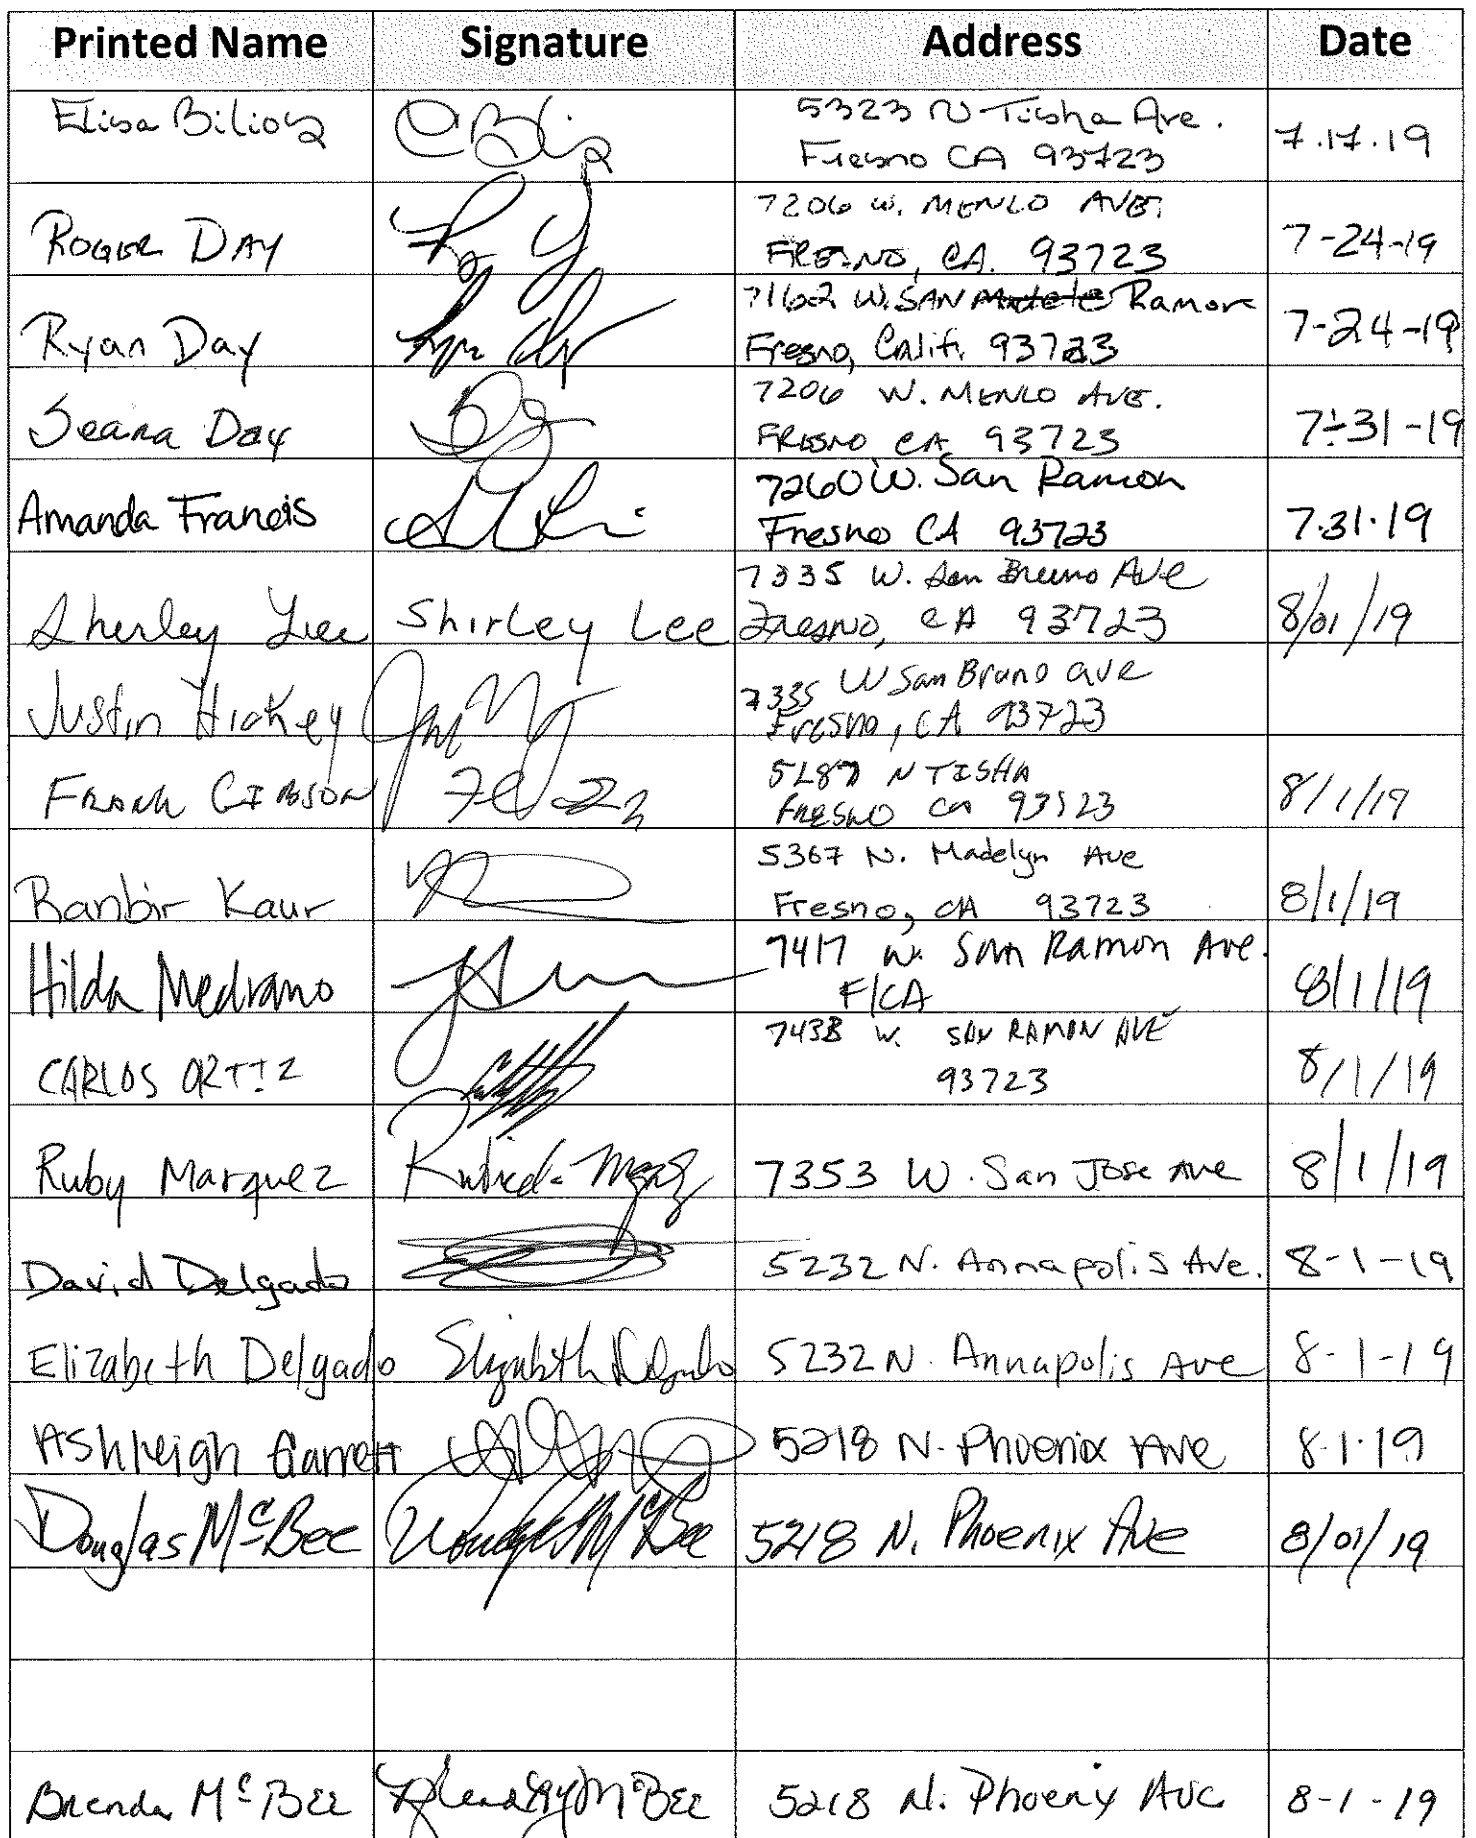 Printed Name Signature Address Date
Elisa Bilios 5323 N Tisha Ave.
Fresno CA 93723 7.17.19
Roger Day 7206 W. Menlo Ave.
Fresno, CA. 93723 7-24-19
Ryan Day 7162 W. San Ramon
Fresno, Calif. 93723 7-24-19
Seana Day 7206 W. Menlo Ave.
Fresno, CA 93723 7-31-19
Amanda Francis 7260 W. San Ramon
Fresno CA 93723 7.31.19
Sherley Lee Shirley Lee 7335 W. San Bruno Ave
Fresno, CA 93723 8/01/19
Justin Hickey 7335 W San Bruno ave
Fresno, CA 93723
Frank Gibson N Tisha
Fresno Ca 8/1/19
Ranbir Kaur 5367 N. Madelyn Ave
Fresno, CA 93723 8/1/19
Hilda Medrano 7417 W. San Ramon Ave.
F/CA 8/1/19
CARLOS ORTIZ 7438 W. SAN RAMON AVE
93723 8/1/19
Ruby Marquez 7353 W. San Jose Ave 8/1/19
David Delgado 5232 N. Annapolis Ave. 8-1-19
Elizabeth Delgado Elizabeth Delgado 5232 N. Annapolis Ave 8-1-19
Ashleigh Garrett 5218 N. Phoenix Ave 8.1.19
Douglas McBee Douglas McBee 5218 N. Phoenix Ave 8/01/19
Brenda McBee McBee 5218 N. Phoenix Ave 8-1-19